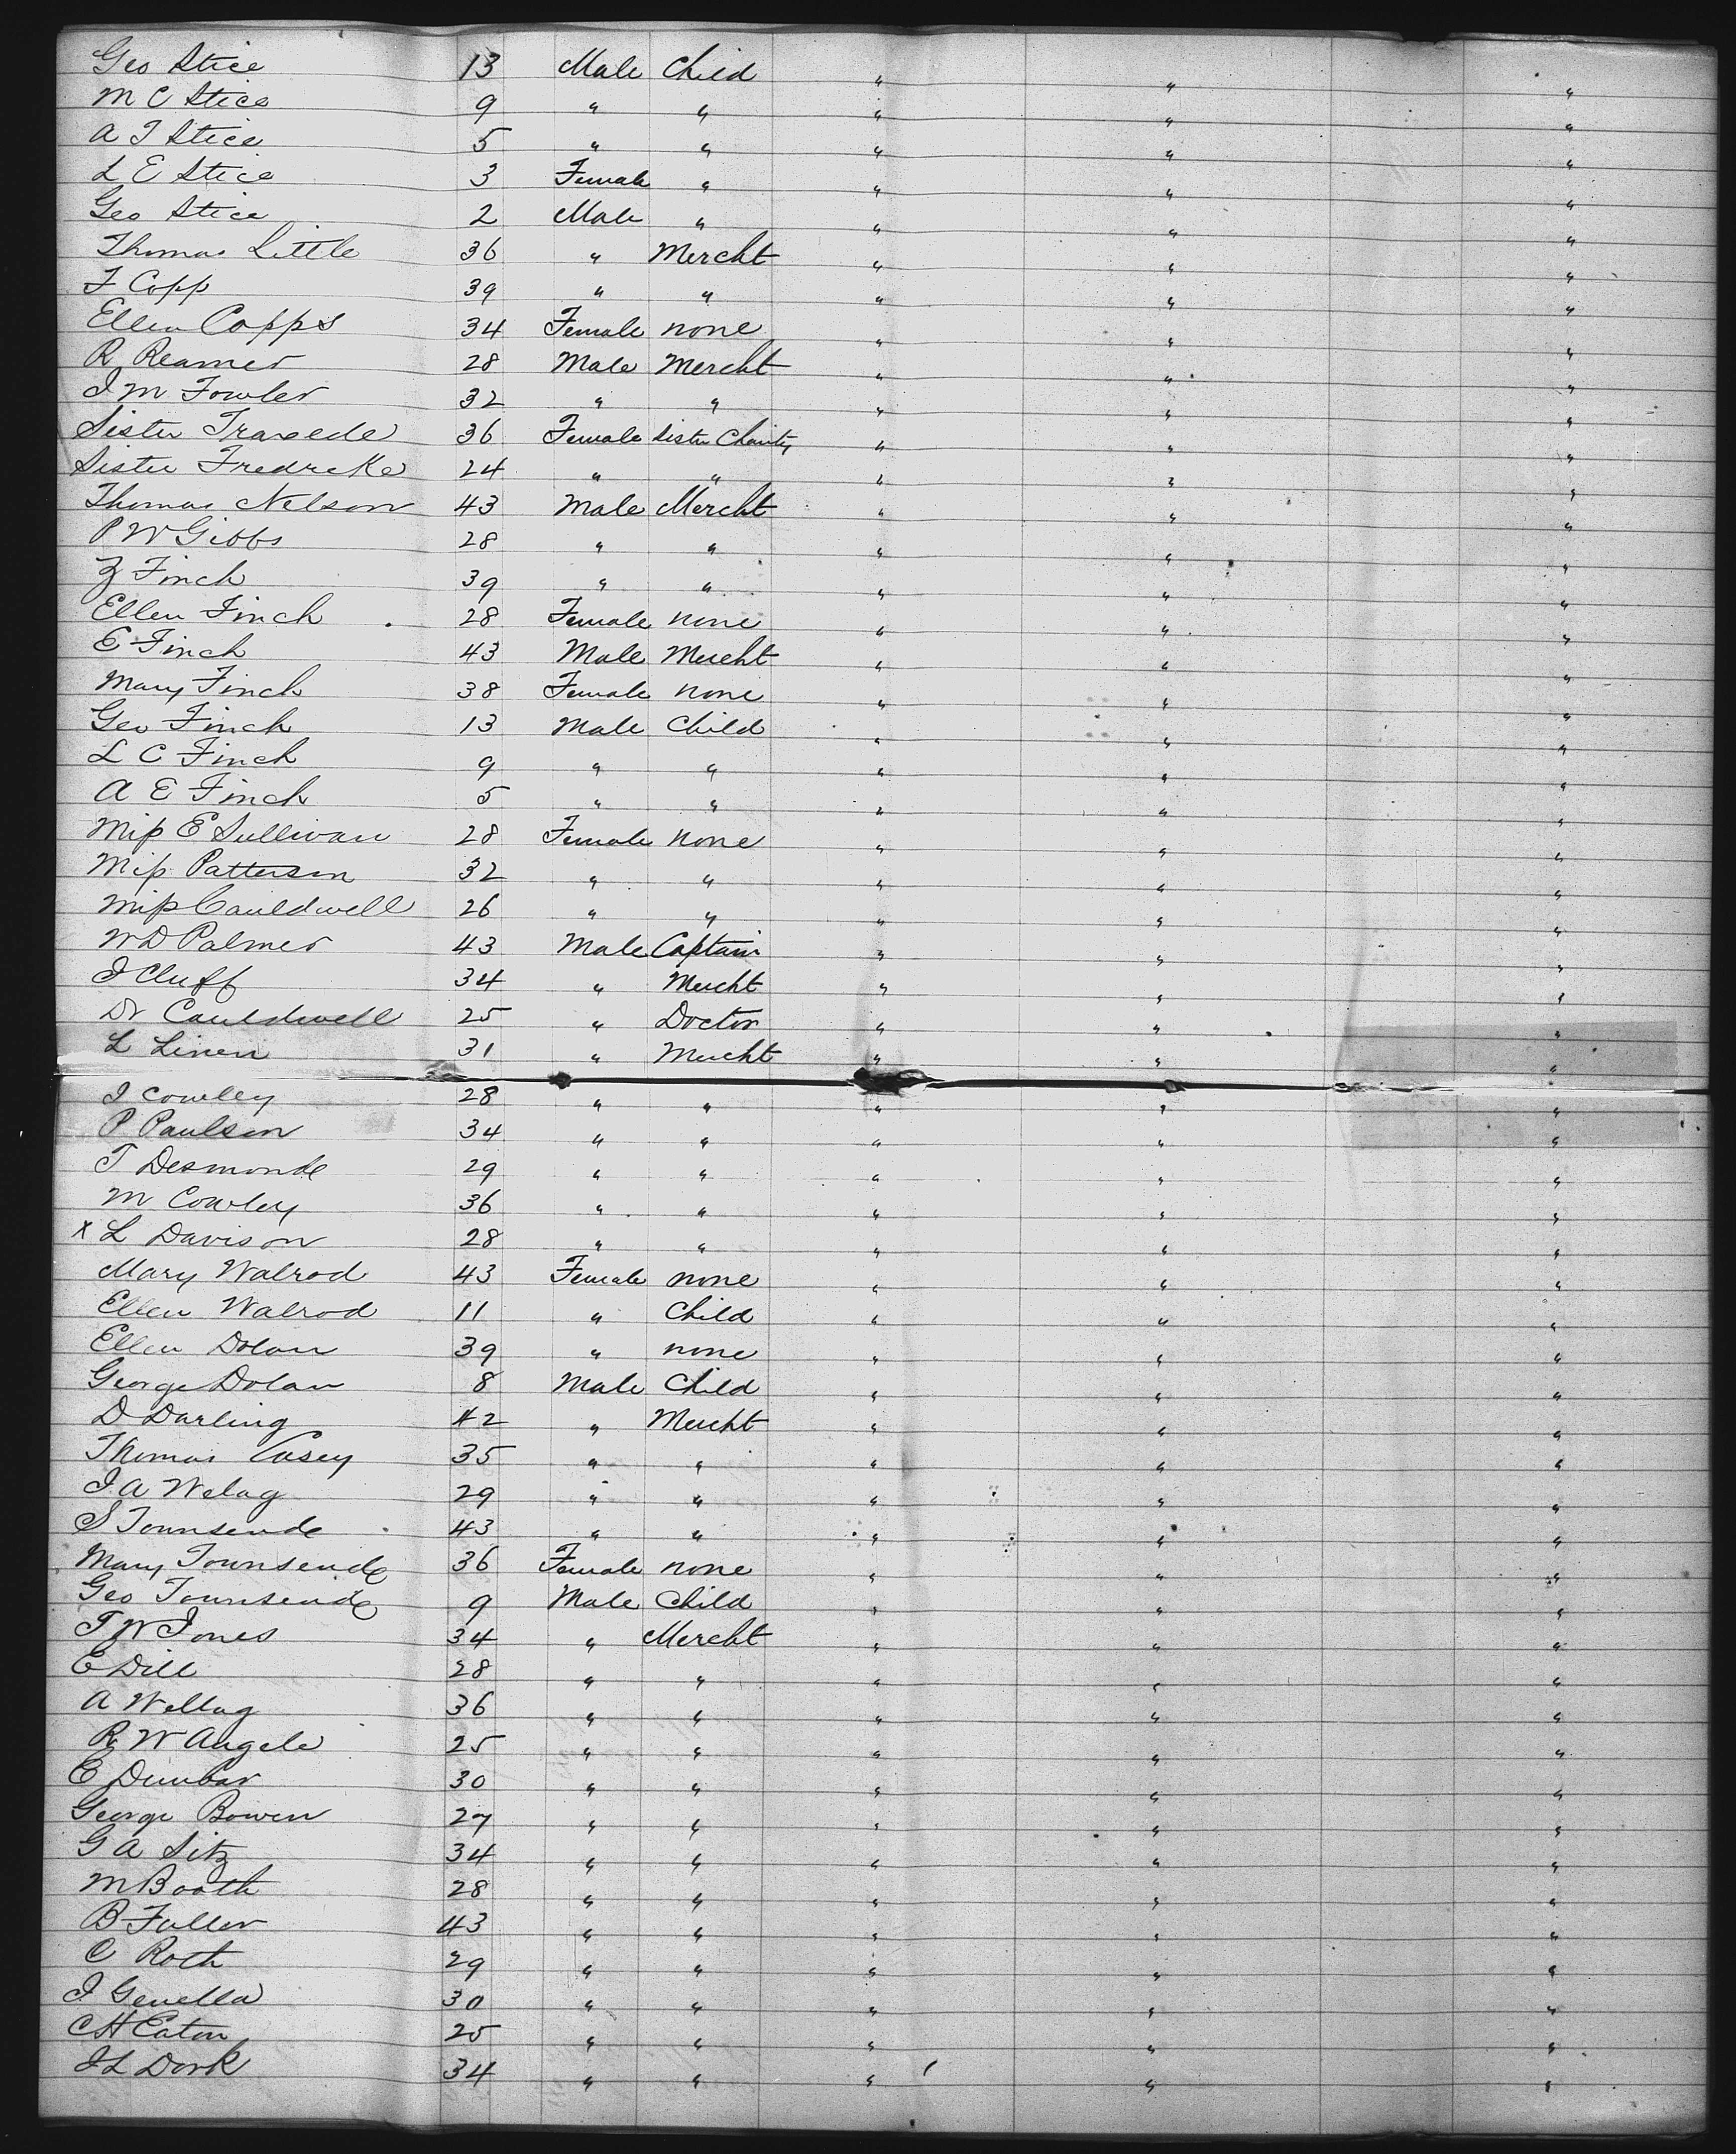 Geo Stice 13 Male Child " " "
M C Stice 9 " " " " "
A T Stice 5 " " " " "
L E Stice 3 Female " " " "
Geo Stice 2 Male " " " "
Thomas Little 36 " Mercht " " "
F Copp 39 " " " " "
Ellen Copps 34 Female none " " "
R Reamer 28 Male Mercht " " "
I M Fowler 32 " " " " "
Sister 36 Female Sister Charity " " "
Sister Fredrcke 24 " " " " "
Thomas Nelson 43 Male Mercht " " "
P W Gibbs 28 " " " " "
Z Finch 39 " " " " "
Ellen Finch 28 Female none " " "
E Finch 43 Male Mercht " " "
Mary Finch 38 Female none " " "
Geo Finch 13 Male Child " " "
L C Finch 9 " " " " "
A E Finch 5 " " " " "
Miss E Sullivan 28 Female none " " "
Miss Patterson 32 " " " " "
Miss Cauldwell 26 " " " " "
W D Palmer 43 Male Captain " " "
I Cluff 34 " Mercht " " "
Dr Cauldwell 25 " Doctor " " "
L Linen 31 " Mercht " " "
I Cowley 28 " " " " "
P Paulsen 34 " " " " "
T Desmonde 29 " " " " "
M Cowley 36 " " " " "
x L Davison 28 " " " " "
Mary Walrod 43 Female none " " "
Ellen Walrod 11 " Child " " "
Ellen Dolan 39 " none " " "
George Dolan 8 Male Child " " "
D Darling 42 " Mercht " " "
Thomas Casey 35 " " " " "
I A Welag 29 " " " " "
S Townsende 43 " " " " "
Mary Townsende 36 Female none " " "
Geo Townsende 9 Male Child " " "
T W Jones 34 " Mercht " " "
E Dill 28 " " " " "
A Wellag 36 " " " " "
R W Angele 25 " " " " "
E Dunbar 30 " " " " "
George Bowen 27 " " " " "
G A Sitz 34 " " " " "
M Booth 28 " " " " "
B Fuller 43 " " " " "
C Roth 29 " " " " "
I Genella 30 " " " " "
C H Eaton 25 " " " " "
I L Dork 34 " " " " "